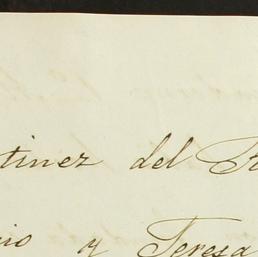 tinez del
nio y Teresa